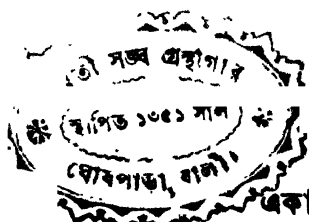 সঙ্ঘ গ্রন্থাগার
স্থাপিত ১৩৫১ সাল
ঘোষপাড়া, বালী
একা